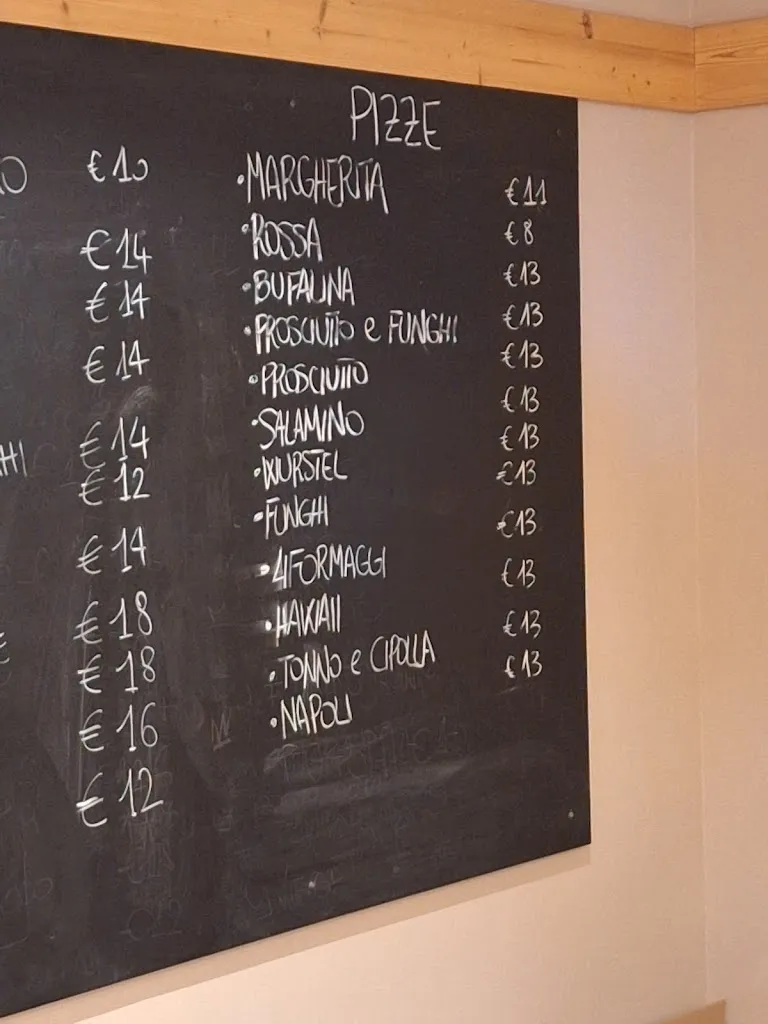 PIZZE
O € 10
€ 14
€ 14
€ 14
HI € 14
€ 12
€ 14
€ 18
€ 18
€ 16
€ 12
• MARGHERITA € 11
• ROSSA € 8
• BUFALINA € 13
• PROSCIUTTO e FUNGHI € 13
• PROSCIUTTO € 13
• SALAMINO € 13
• WURSTEL € 13
• FUNGHI € 13
• 4 FORMAGGI € 13
• HAWAII € 13
• TONNO e CIPOLLA € 13
• NAPOLI € 13